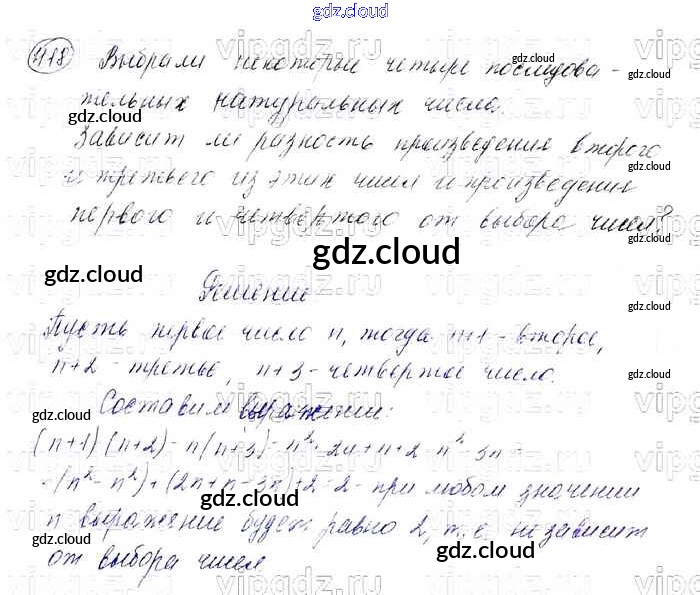 gdz.cloud
418 Выбрали некоторые четыре последова-
тельных натуральных числа.
Зависит ли разность произведения второго
и третьего из этих чисел и произведения
первого и четвертого от выбора чисел?
gdz.cloud
Решение
Пусть первое число n, тогда n+1 - второе,
n+2 - третье, n+3 - четвертое число.
Составим выражение:
(n+1)(n+2) - n(n+3) = n² + 2n + n + 2 - n² - 3n =
= (n² - n²) + (2n + n - 3n) + 2 = 2 - при любом значении
n выражение будет равно 2, т.е. не зависит
от выбора чисел